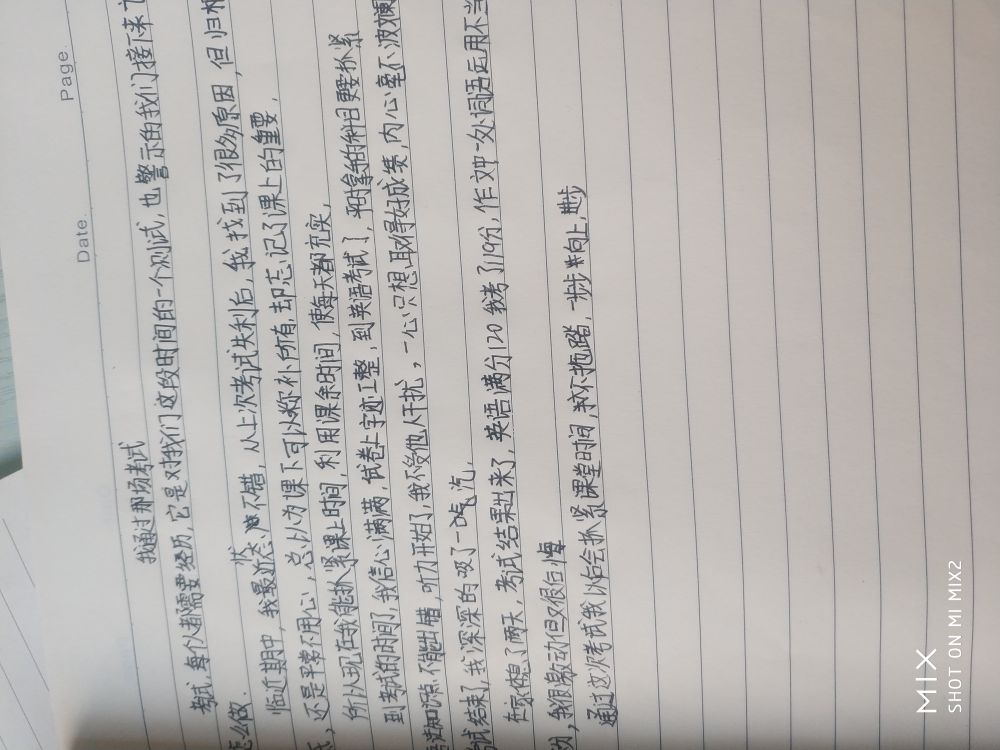 Page.
Date.
我通过那场考试
考试,每个人都需要经历,它是对我们这段时间的一个测试,也警示的我们接下来
怎么做.
临近期中,我最近状态不错,从上次考试失利后,我找到了很多原因,但归根
还是平常不用心,总以为课下可以弥补所有,却忘记了课上的重要,
所以现在我能抓紧课上时间,利用课余时间,使每天都充实,
到考试的时间了,我信心满满,试卷上字迹工整,到英语考试了,平时拿手的科目更要抓紧
知识点不能出错,听力开始了,我不受他人干扰,一心只想取得好成绩,内心毫不波澜
试结束了,我深深的吸了一口气,
在家休息了两天,考试结果出来了,英语满分120我考了119分,作文中一处词语运用不当
我很激动但又很后悔
通过这次考试我以后会抓紧课堂时间,决不拖踏,步步向上,进步
MIX
SHOT ON MI MIX2